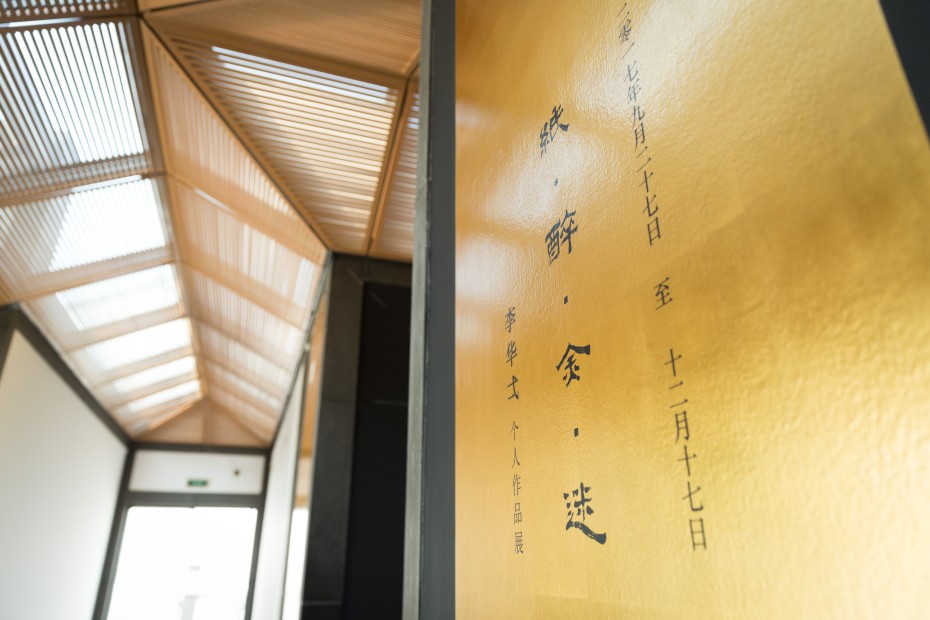 二零一七年九月二十七日 至 十二月十七日
紙·醉·金·迷
李华弌 个人作品展